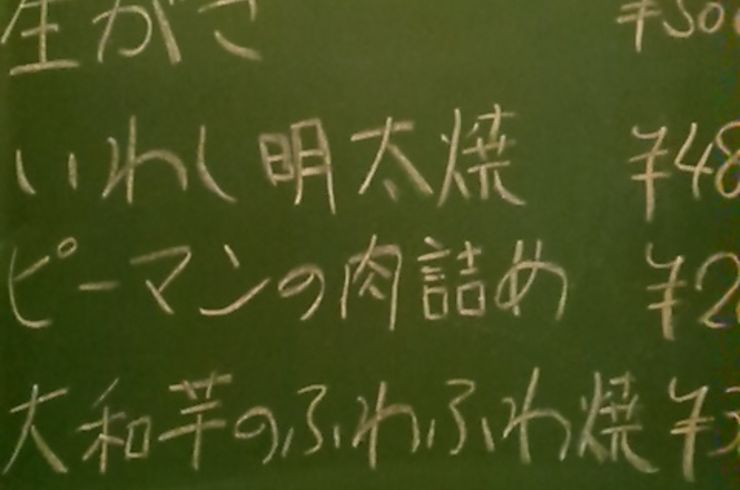 生がき ¥500
いわし明太焼 ¥48
ピーマンの肉詰め ¥2
大和芋のふわふわ焼 ¥